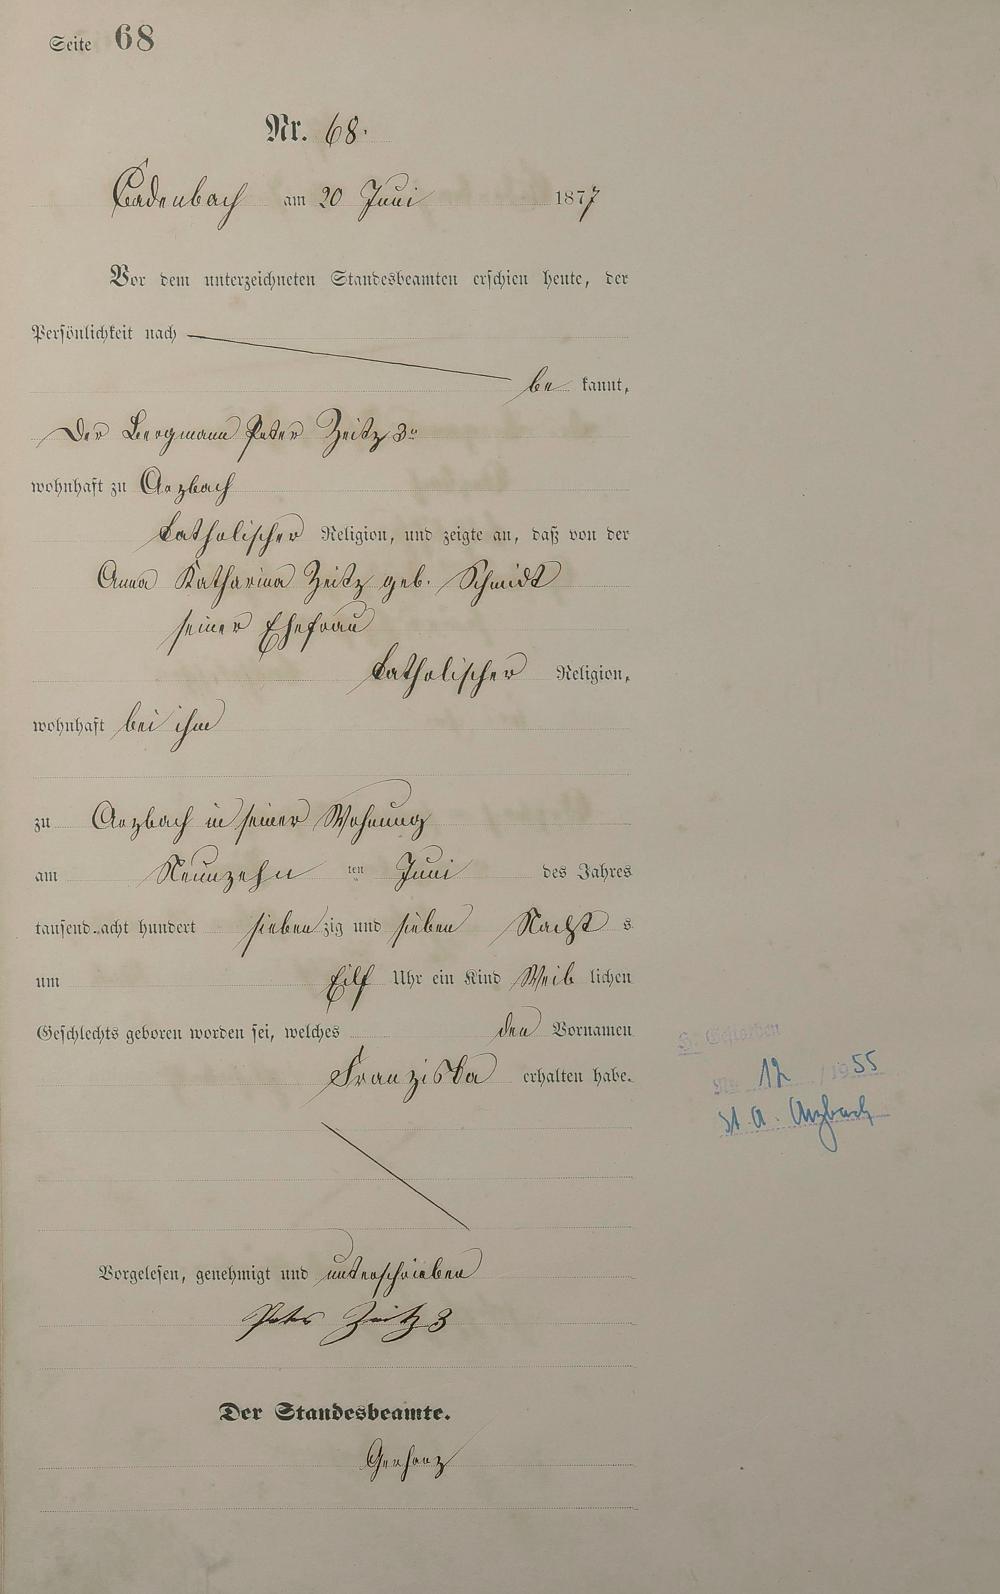 Seite 68
Nr. 68.
Cadenbach am 20 Juni 1877
Vor dem unterzeichneten Standesbeamten erschien heute, der
Persönlichkeit nach
be kannt,
Der Bergmann Peter Zeitz 3r
wohnhaft zu Arzbach
katholischer Religion, und zeigte an, daß von der
Anna Katharina Zeitz geb. Schmidt
seiner Ehefrau
katholischer Religion,
wohnhaft bei ihm
zu Arzbach in seiner Wohnung
am Neunzehn ten Juni des Jahres
tausend acht hundert siebenzig und sieben Nacht s
um Eilf Uhr ein Kind Weib lichen
Geschlechts geboren worden sei, welches den Vornamen
Franziska erhalten habe.
Nr. 12 /1955
St. A. Arzbach
Vorgelesen, genehmigt und unterschrieben
Peter Zeitz 3
Der Standesbeamte.
Gerharz